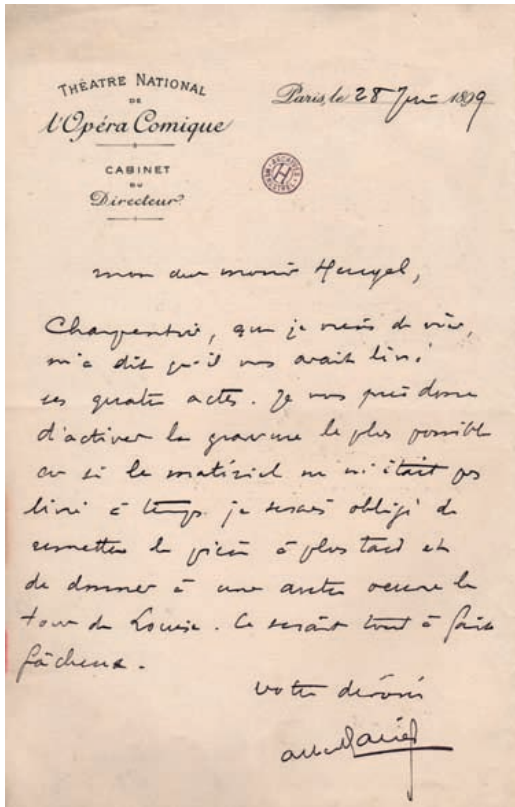 THÉATRE NATIONAL
DE
l'Opéra Comique
CABINET
DU
Directeur
Paris, le 28 Juin 1899
ARCHIVES
H
MENESTREL
mon cher monsieur Heugel,
Charpentier, que je viens de voir,
m'a dit qu'il vous avait livré
ses quatre actes. Je vous prie donc
d'activer la gravure le plus possible
car si le matériel ne m'était pas
livré à temps je serais obligé de
remettre la pièce à plus tard et
de donner à une autre oeuvre le
tour de Louise. Ce serait tout à fait
fâcheux.
votre dévoué